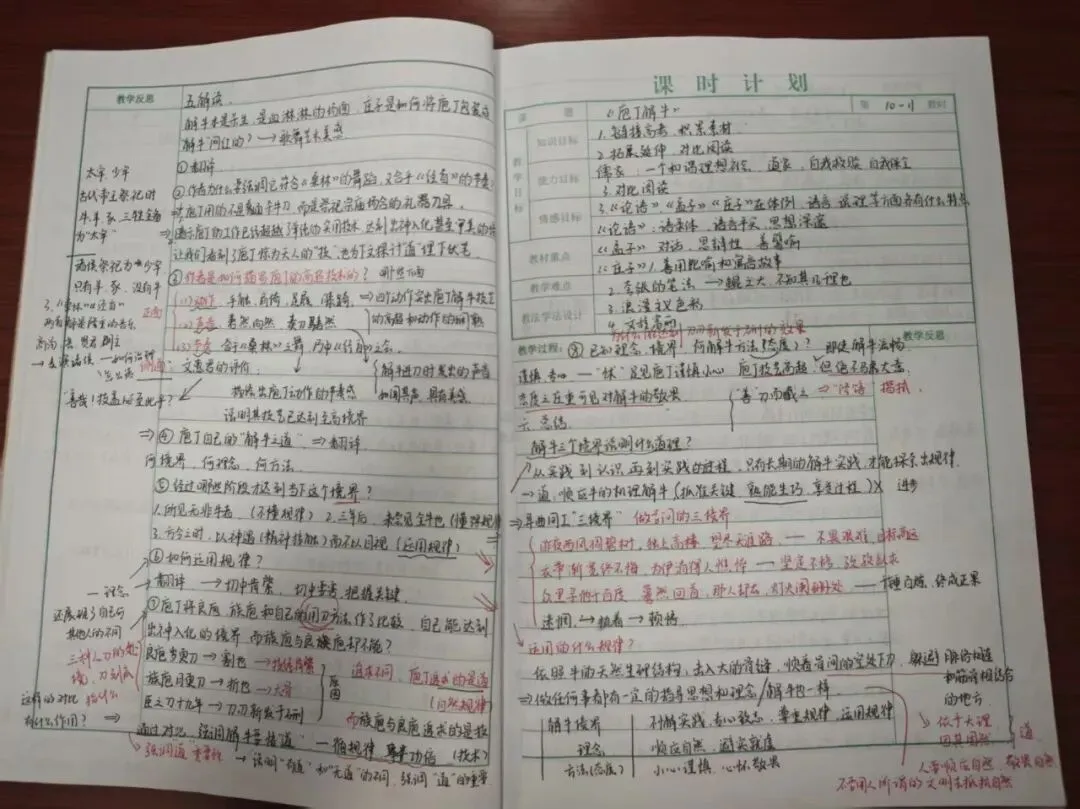 教学反思
五解读.
解牛本是杀生,是血淋淋的场面,庄子是如何将庖丁包装成
解牛网红的?→歌舞艺术美感
①翻译
②作者为什么要强调它符合《桑林》的舞蹈,又合乎《经首》的节奏?
让我们看到了庖丁惊为天人的“技”,也为下文探讨“道”埋下伏笔.
③作者是如何描写庖丁的高超技术的?哪些方面
(1)动作:手触,肩倚,足履,膝踦,⇒四个动作突出庖丁解牛技艺
的高超和动作的娴熟
(2)声音:砉然向然,奏刀騞然
(3)节奏:合于《桑林》之舞,乃中《经首》之会.
解牛进刀时发出的声音
如闻其声,具有美感
文惠君的评价
“善哉!技盖至此乎?”
描绘出庖丁动作的节奏感
说明其技艺已达到至高境界
⇒④庖丁自己的“解牛之道”⇒翻译
何境界,何理念,何方法.
⑤经过哪些阶段才达到当下这个境界?
1.所见无非牛者 (不懂规律) 2.三年后,未尝见全牛也(懂得规律)
3.方今之时,以神遇(精神接触)而不以目视(运用规律)
⑥如何运用规律?
翻译 →切中肯綮,切中要害,把握关键.
⑦庖丁将良庖,族庖和自己的用刀方法作了比较,自己能达到
出神入化的境界,而族庖与良庖却不能?
良庖岁更刀→割也→技经肯綮
族庖月更刀→折也→大軱
臣之刀十九年→刀刃新发于硎
原因
追求不同,庖丁追求的是道
(自然规律)
而族庖与良庖追求的是技
(技术)
通过对比,强调解牛要接道”—循规律,事半功倍
强调道”重要性 →说明“有道”和“无道”的不同,强调“道”的重要
太牢 少牢
古代帝王祭祀时
牛、羊、豕、三牲全备
为“太牢”
诸侯祭祀为“少牢
只有羊、豕、没有牛
正面
侧面
一理念
还展现了自己与
其他人的不同
这样的对比
有什么作用? ⇒
课时计划
课题
《庖丁解牛》
第 10-11 教时
教学目标
知识目标
能力目标
情感目标
教材重点
教学难点
教法学法设计
1.链接高考,积累素材
2.拓展延伸,对比阅读
儒家:一个和谐理想社会 道家,自我救赎 自我保全
3.对比阅读
3.《论语》《孟子》《庄子》在体例,语言,说理等方面各有什么特点
《论语》:语录体,语言平实,思想深邃
《孟子》 对话,思辨性,善譬喻
《庄子》1.善用比喻和寓言故事
2.夸张的笔法 →鲲之大,不知其几千里也
3.浪漫主义色彩
教学过程:
教学反思
⑧已知理念,境界,何解牛方法(态度)?
即使解牛流畅
谨慎,专心 —“怵”足见庖丁谨慎小心 庖丁技艺高超,但绝不马虎大意.
态度之庄重可见对解牛的敬畏
“善”刀而藏之
六 总结
解牛三个境界说明什么道理?
从实践到认识再到实践的过程,只有长期的解牛实践,才能探索出规律.
→道,顺应牛的机理解牛(抓准关键,熟能生巧,享受过程)
进步
⇒异曲同工“三境界” 做学问的三境界
昨夜西风凋碧树,独上高楼,望尽天涯路,— 不畏艰难,目标高远
衣带渐宽终不悔,为伊消得人憔悴 — 坚定不移
众里寻他千百度,蓦然回首,那人却在,灯火阑珊处 — 千锤百炼,终成正果
迷惘→执着→顿悟
运用的什么规律?
依照牛的天然生理结构,击入大的骨缝,顺着骨间的空处下刀,
躲避
和筋骨相结合
的地方
⇒做任何事都有一定的指导思想和理念,解牛也一样.
解牛境界 不断实践,专心致志,尊重规律,运用规律
理念 顺应自然,避实就虚
方法(态度) 小心谨慎,心怀敬畏
⇒依乎天理
因其固然
道
人要顺应自然,敬畏自然
不要用人所谓的文明去抵抗自然